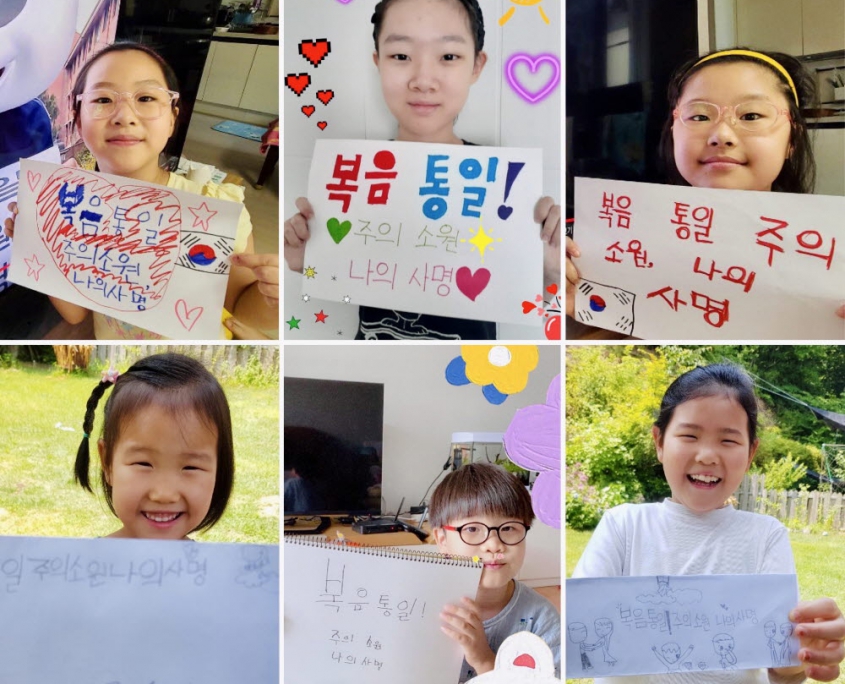 복음통일
주의소원
나의사명
복음 통일!
주의 소원
나의 사명
복음 통일 주의
소원, 나의
사명
일 주의소원 나의사명
복음통일!
주의 소원
나의 사명
복음통일 주의 소원 나의사명